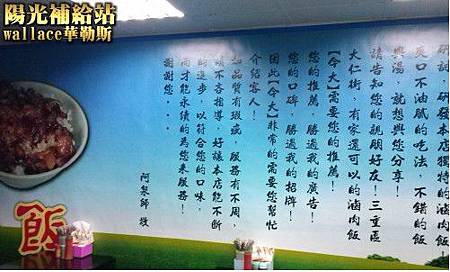 陽光補給站
wallace華勒斯
研討，研發本店獨特的滷肉飯！
爽口不油膩的吃法，不錯的飯
與湯，就想與您分享！
請告知您的親朋好友！三重區
大仁街，有家還可以的滷肉飯
【今大】需要您的推薦！
您的推薦，勝過我的廣告！
您的口碑，勝過我的招牌！
因此【今大】非常的需要您幫忙
介紹客人！
如品質有瑕疵，服務有不周，
請不吝指導，好讓本店能不斷
的進步，以符合您的口味，
而才能永續的為您來服務！
謝謝您...
阿泉師 敬
飯